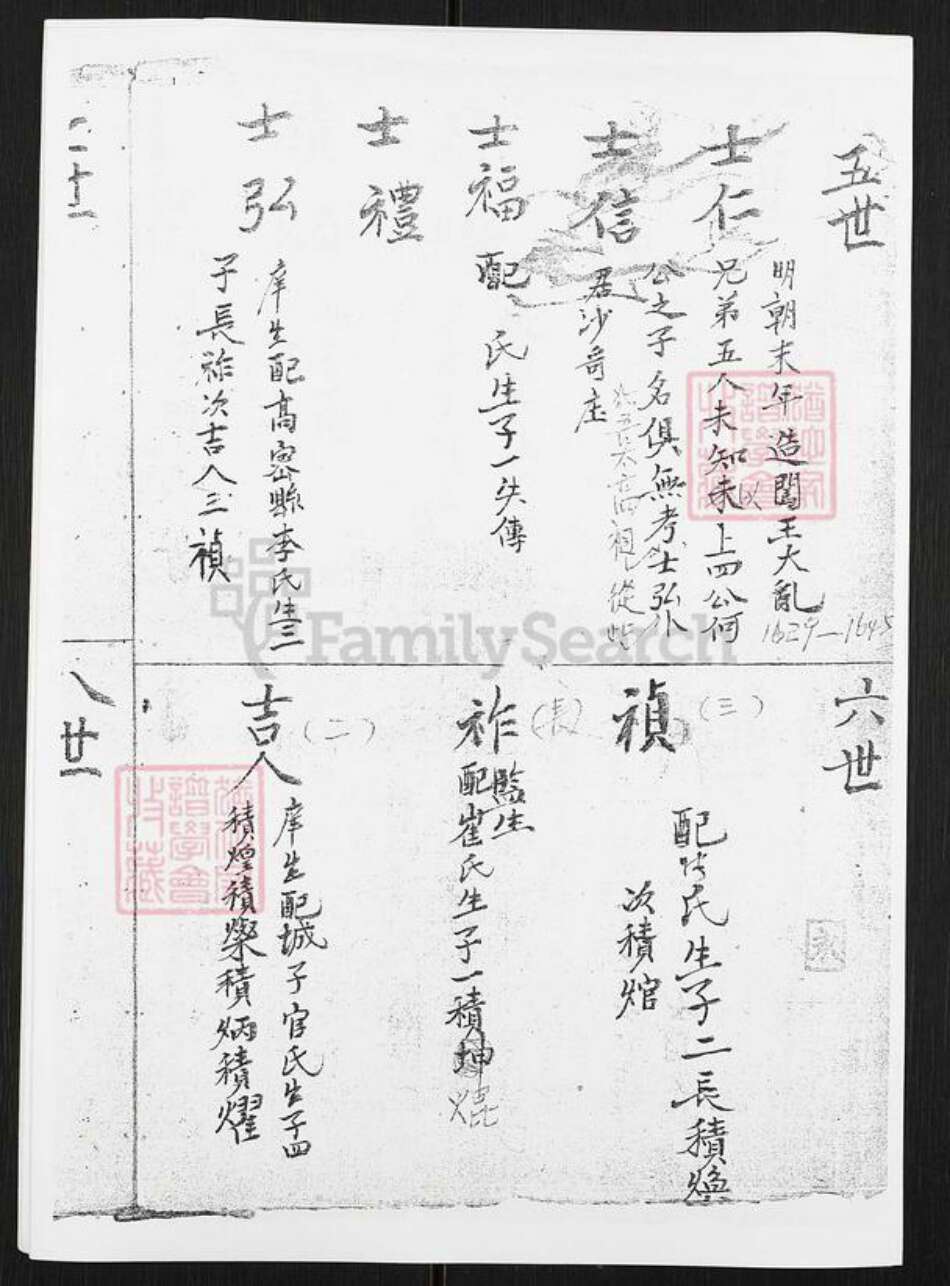 五世
明朝末年造闖王大亂
1629—1645
士仁
兄弟五人未知以上四公何
公之子名俱無考士弘
士信
居沙奇庄
士福
配 氏生子一失傳
士禮
士弘
庠生配高密縣李氏生三
子長祚次吉人三禎
六世
禎
(三)
配 氏生子二長積煥
次積㷄
祚
(長)
監生
配崔氏生子一積坤
焜
吉人
(二)
庠生配城子官氏生子四
積煌積燦積炳積燿
二十一
八
廿一
FamilySearch